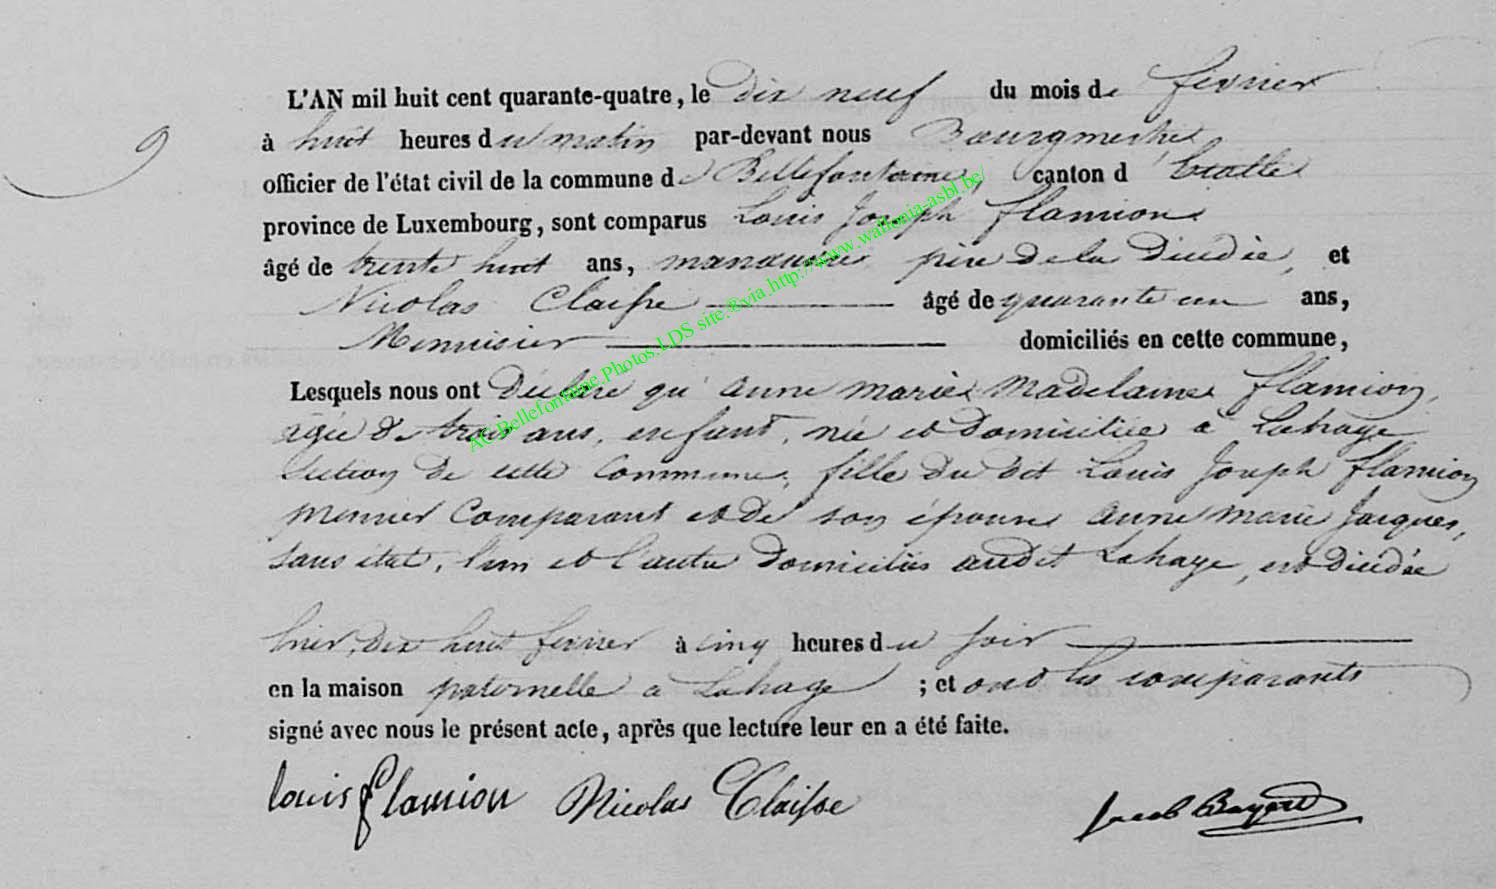 L'AN mil huit cent quarante-quatre, le dix neuf du mois de fevrier
9 à huit heures du matin par-devant nous Bourgmestre
officier de l'état civil de la commune de Bellefontaine, canton d'Etalle
province de Luxembourg, sont comparus Louis Joseph Flamion
âgé de trente huit ans, manœuvre père de la Dicédée, et
Nicolas Claisse âgé de quarante un ans,
Menuisier domiciliés en cette commune,
Lesquels nous ont Déclaré qu'anne marie Madelaine Flamion,
agée de trois ans, enfant, née et domiciliée a Lahage
Section de cette Commune, fille du dit Louis Joseph Flamion
premier Comparant et de son épouse anne marie Jacques,
sans état, l'un et l'autre domiciliés audit Lahage, est dicédée
hier, dix huit fevrier à cinq heures du soir
en la maison paternelle a Lahage ; et ont les comparants
signé avec nous le présent acte, après que lecture leur en a été faite.
louis flamion Nicolas Claisse Jacob Bayard
AC.Bellefontaine.Photos.LDS site.®via.http://www.wallonia-asbl.be/